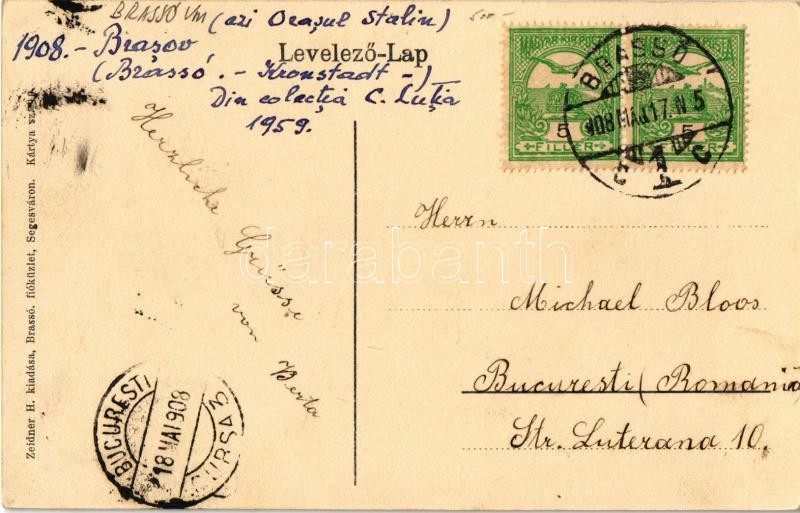 BRASSÓ Vm
(azi Orașul Stalin)
500-
1908.- Brașov
(Brassó.- Kronstadt -)
Din colecția C. Luția
1959.
Levelező-Lap
MAGYAR KIR. POSTA
5 FILLÉR
5 FILLÉR
BRASSÓ
908 MÁJ 17. N 5
1
C
Zeidner H. kiadása, Brassó, fióküzlet, Segesváron. Kártya
Herzliche
Grüsse
von
Berta
Herrn
Michael Bloos
Bucuresti (Romania
Str. Luterana 10.
BUCURESTI
18 MAI 908
CURSA 3
darabanth